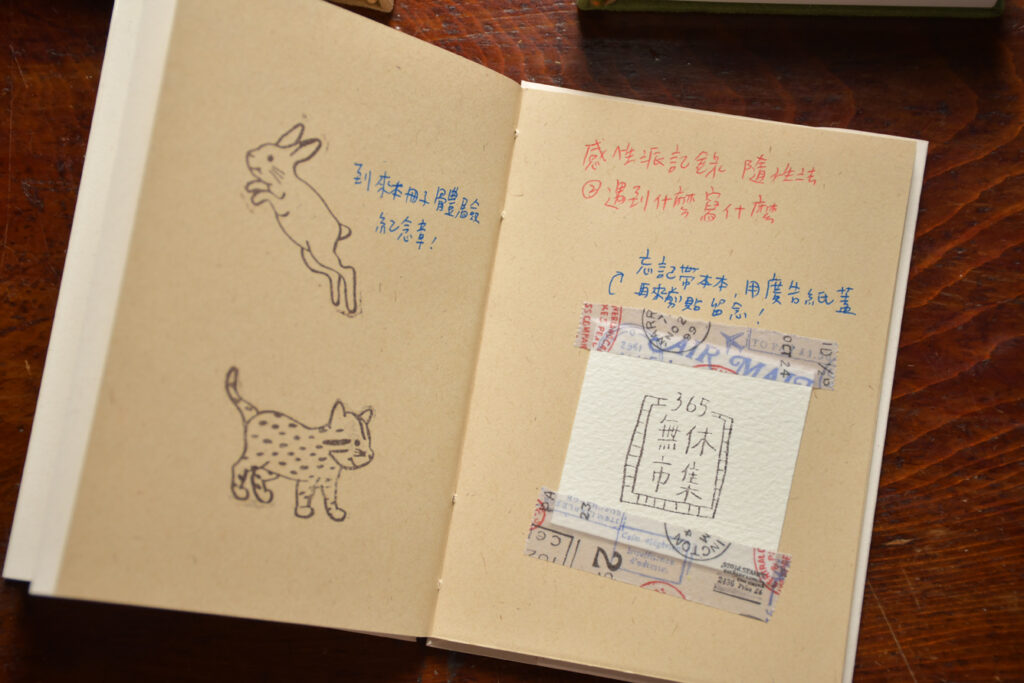 到來本冊子體驗
紀念章!
感性派記錄 隨性法
②遇到什麼寫什麼
忘記帶本本,用廣告紙蓋
再來剪貼留念!
AIR MAIL
OCT 24
365
無休
市集
INGTON